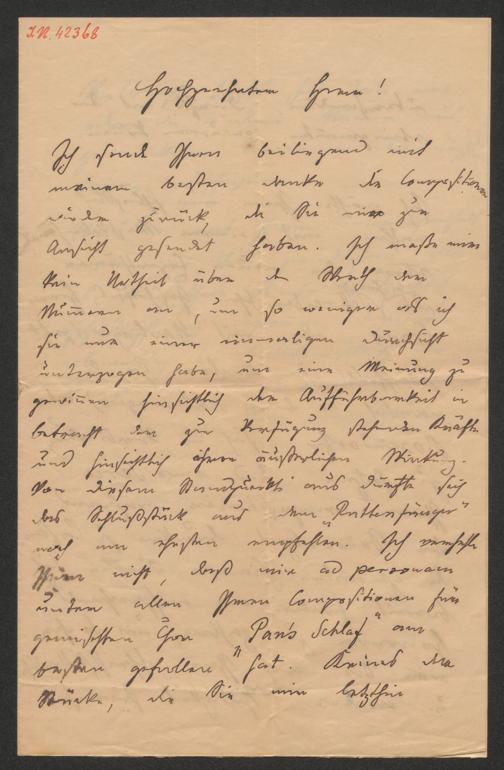 I.N. 42368
Hochgeehrter Herr!
Ich sende Ihnen beiliegend mit
meinem besten Danke die Compositionen
wieder zurück, die Sie mir zur
Ansicht gesendet haben. Ich maße mir
kein Urtheil über den Werth der
Nummern an, um so weniger als ich
sie nur einer einmaligen Durchsicht
unterzogen habe, um eine Meinung zu
gewinnen hinsichtlich der Aufführbarkeit in
Betracht der zur Verfügung stehenden Kräfte
und hinsichtlich ihrer äußerlichen Wirkung.
Von diesem Standpunkte aus dürfte sich
das Schlußstück aus dem "Rattenfänger"
noch am ehesten empfehlen. Ich verhehle
Ihnen nicht, daß mir ad personam
unter allen Ihren Compositionen für
gemischten Chor "Pan's Schlaf" am
besten gefallen hat. Keines der
Stücke, die Sie mir letzthin